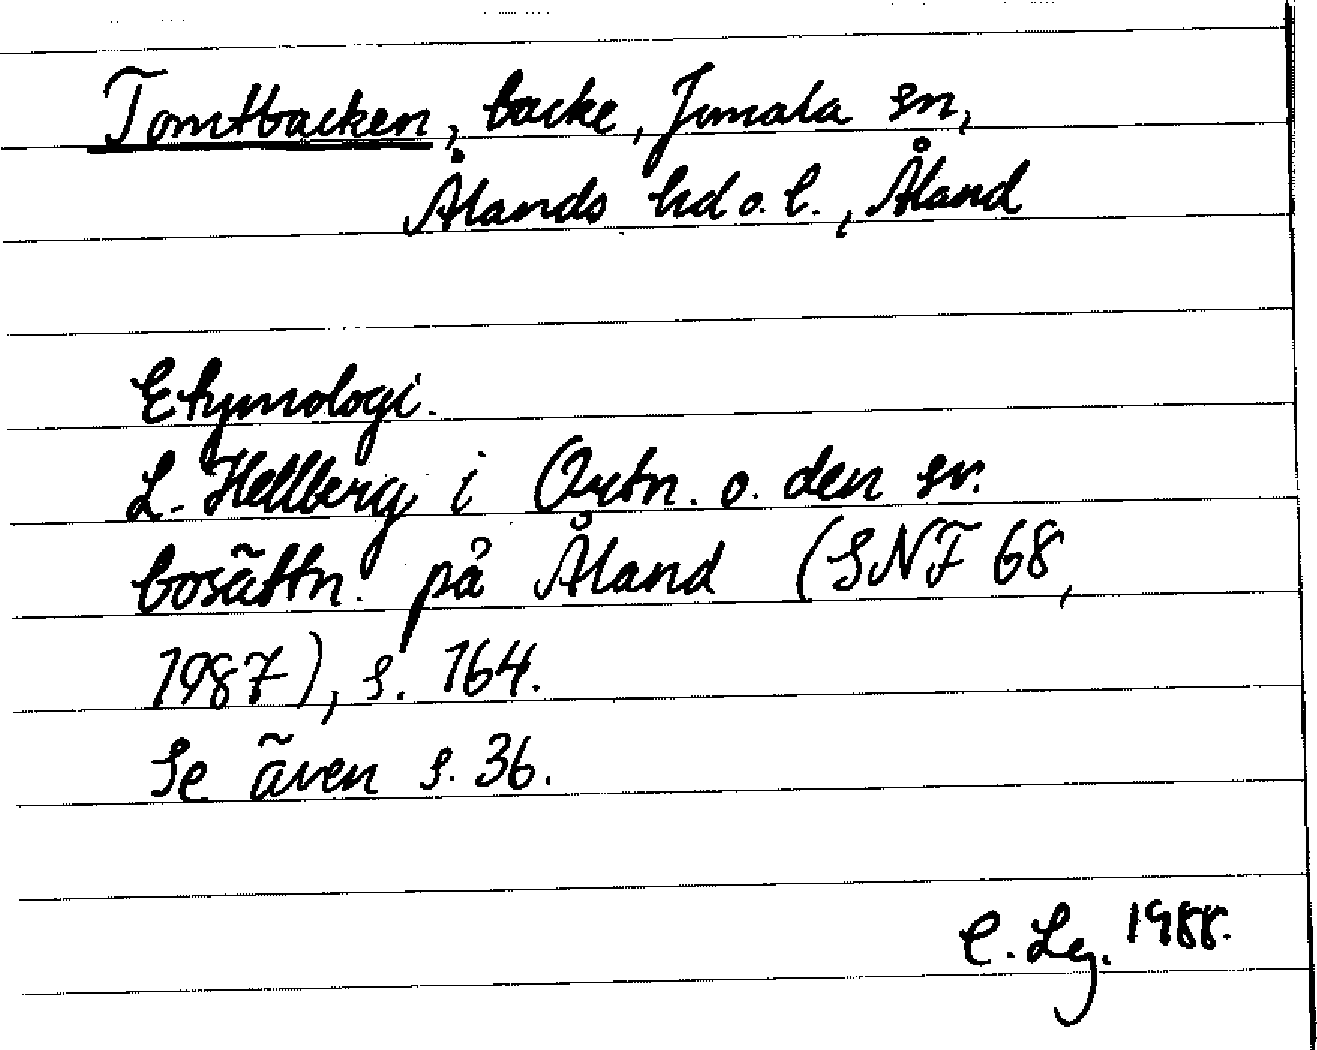 Tomtbacken, backe, Jomala sn,
Ålands hd o. l., Åland
Etymologi.
L. Hellberg i Ortn. o. den sv.
bosättn. på Åland (SNF 68,
1987), s. 164.
Se även s. 36.
C. Lg. 1988.